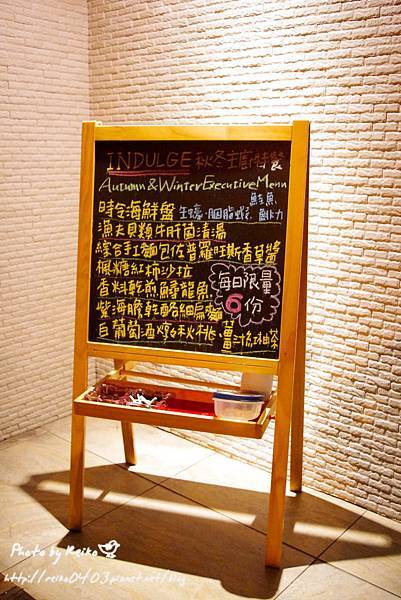 INDULGE 秋冬主廚特餐 &
Autumn & Winter Executive Menu
時令海鮮盤 生蠔、胭脂蝦、鮭魚、
漁夫貝類牛肝菌清湯
綜合手工麵包佐普羅旺斯香草醬
楓糖紅柿沙拉
香料乾煎鱘龍魚
紫海膽乾酪細扁麵
白葡萄酒燉秋桃、薑汁協和柚茶
每日限量
6份
Photo by Keiko
http://reiko0403.pixnet.net/blog